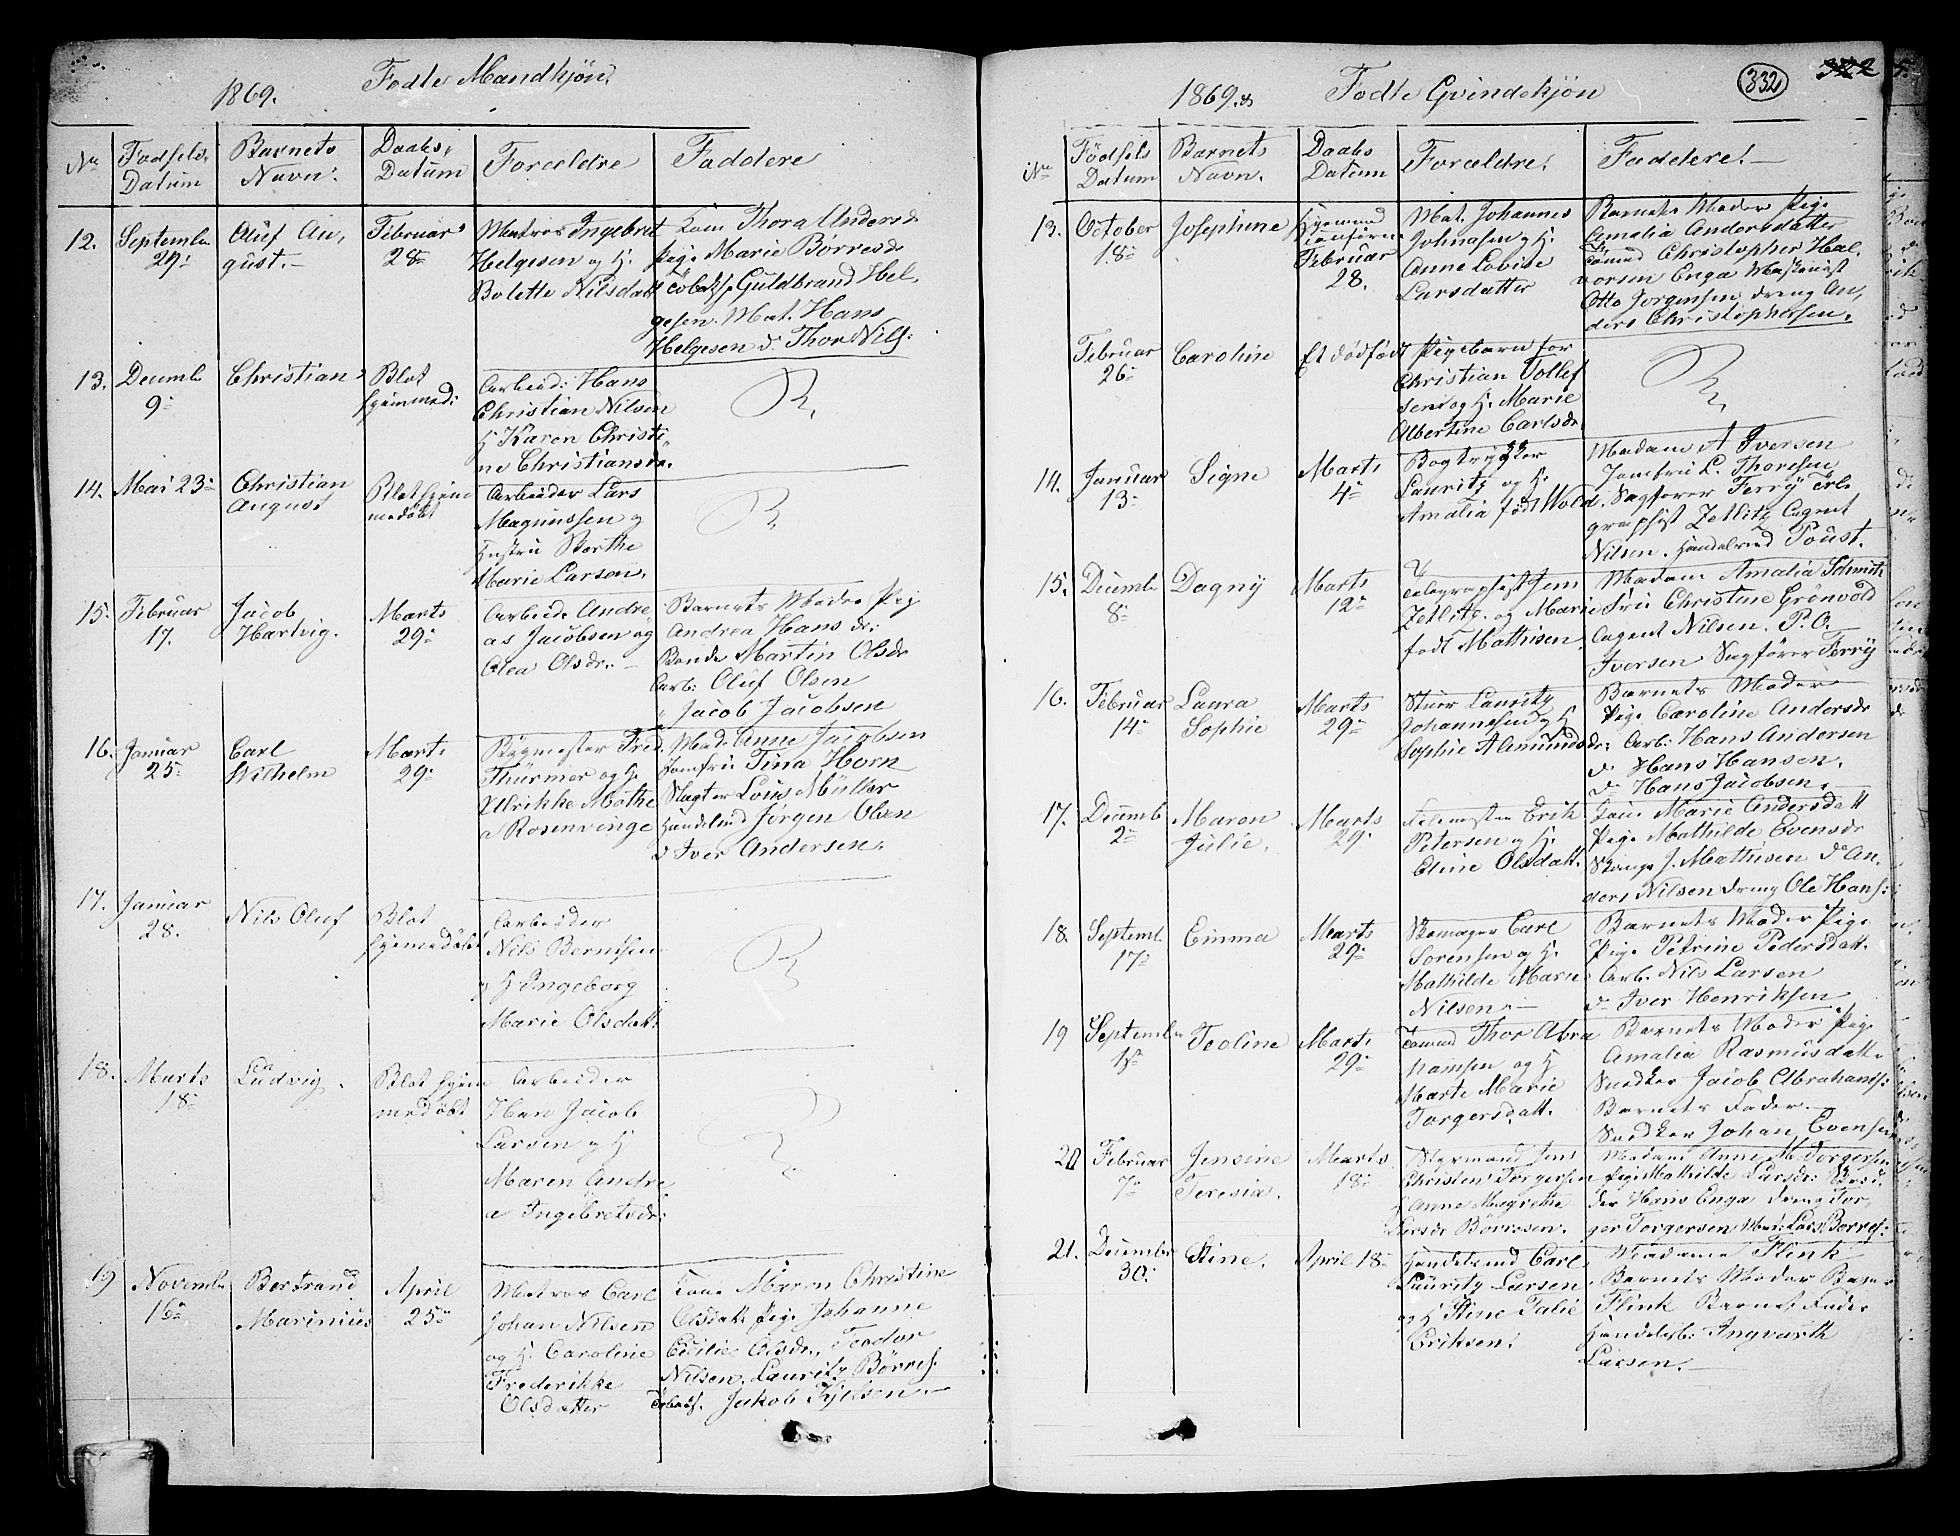 1869. Fodte Mandkjøn.
No Fodsels Datum Barnets Navn. Daabs Datum Forældre Faddere
12. Septembr 29. Oluf August. Februar 28
Matros Ingebret
Helgesen og H.
Bolette Nilsdatt
Kone Thora Andersd
Pige Marie Borresdr
Guldbrand Hel,
gesen. Mat. Hans
Helgesen do Thor Nils:
13. Decemb 9. Christian Blot hjemmed:
Arbeid: Hans
Christian Nilsen
H Karen Christi
ne Christiansdr.
14. Mai 23 Christian August Blot hjemmedøbt
Arbeider Lars
Magnussen og
Hustru Borthe
Marie Larsen.
15. Februar 17. Jacob Hartvig. Marts 29
Arbeid. Andre
as Jacobsen og
Olea Olsdr.
Barnets Moder Pig
Andrea Hansdr:
Bonde Martin Olsdr
Arb: Oluf Olsen
" Jacob Jacobsen
16. Januar 25 Carl Wilhelm Marts 29
Bygmester Fred.
Thürmer og H.
Ulrikke Mathe
a Rosenvinge
Mad. Anne Jacobsen
Jomfru Tina Horn
Slagter Louis Müller
Handelsmd Jørgen Olsen
do Iver Andersen.
17. Januar 28. Nils Oluf Blot hjemmedøbt
Arbeider
Nils Berntsen
og H Ingeborg
Marie Olsdatt:
18. Marts 18 Ludvig. Blot hjemmedøbt
Arbeider
Hans Jacob
Larsen og H
Maren Andre
a Ingebretsdr:
19 Novembr 16 Bertrand Marinius April 25
Matros Carl
Johan Nilsen
og H. Caroline
Frederikke
Olsdatter
Kone Maren Christine
Olsdatt Pige Johanne
Cecilie Olsdr, Teodor
Nilsen, Lauritz Børres.
Jakob Kjelsen.
1869. Fodte Qvindekjøn 332 322
No Fødsels Datum Barnets Navn. Daabs Datum Forældre. Faddere.
13. October 18 Josephine Februar 28.
Mat. Johannes
Johnasen og H.
Anne Lovise
Larsdatter
Barnets Moder Pige
Amalia Andersdatter
Christopher Hal
vorsen Enga Maskinist
Otto Jorgensen, dreng An,
ders Christophersen.
Februar 26 Caroline Et dødfødt
Pigebarn for
Christian Tollef
sen og H. Marie
Albertine Carlsdr
14. Januar 13 Signe Marts 4
Bogtrykker
Lauritz og H.
Amalia født Wold.
Madam A Iversen
Jomfru L. Thoresen
Sagfører Ferry Tele
graphist Zetlitz Agent
Nilsen. Handelsmd Poust.
15. Decemb 8 Dagny Marts 12
Telegraphist Jens
Zetlitz. og Marie
født Mathisen.
Madam Amalia Schmith
Frü Christine Grønvold
Agent Nilsen. P. O.
Iversen Sagfører Ferry
16. Februar 14 Laura Sophie Marts 29
Lauritz
Johannesen og H
Sophie Aamundsdr:
Barnets Moder
Pige Caroline Andersdr
Arb: Hans Andersen
do Hans Hansen.
do Hans Jacobsen.
17. Decemb 2 Maren Julie. Marts 29
Erik
Petersen og H.
Oline Olsdatt.
Kone Marie Andersdatt
Pige Mathilde Evensdr
J. Mathisen do An.
ders Nilsen dreng Ole Hans:
18. Septemb 17 Emma Marts 29
Carl
Sorensen og H.
Mathilde Marie
Nilsen.
Barnets Moder Pige
Pige Petrine Pedersdatt.
Arb. Nils Larsen
do Iver Henriksen
19 Septembr Teoline Marts 29
Thor Abra
hamsen og H
Marte Marie
Torgersdatt.
Barnets Moder Pige
Amalia Rasmusdatt.
Snedker Jacob Abrahams:
Barnets Fader.
Snedker Johan Evensen
20 Februar 7 Jensine Teresia. Marts 18
Styrmand Jens
Christen Torgersen
Anne Margrethe
Larsdr Børresen.
Madam Anne M. Torgersen
Pige Mathilde Larsdr:
Hans Enga dreng Tor,
ger Torgersen Mat: Lars Borres:
21. Decembr 30. Stine. April 18
Handelsmd Carl
Lauritz Larsen
og H Stine Talie
Eriksen.
Madame Flink
Barnets Moder
Flink Barnets Fader
Handelsb: Ingvarth
Larsen.